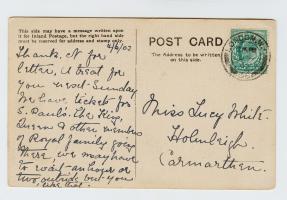 This side may have a message written upon
it for Inland Postage, but the right hand side
must be reserved for address and stamp only.
4/6/02
Thanks for
letter, a treat for
you next Sunday
We have tickets for
S. Pauls. The King,
Queen & other members
of Royal family going
there, we may have
to wait an hour or
two, outside but you
POST CARD
The Address to be written
on this side.
Miss Lucy White
Holmleigh
Carmarthen.